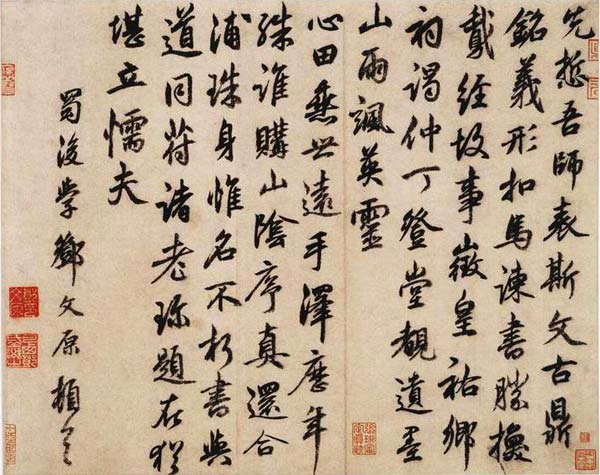 先悊吾師表斯文古鼎
銘義形扣馬諫書勝換
鵞經故事徽皇祐鄉
祠謁仲丁登堂觀遺墨
山雨颯英靈
心田垂世遠手澤歷年
殊誰購山陰序真還合
浦珠身惟名不朽書與
道同符諸老珎題在猶
堪立懦夫
蜀後學鄧文原頓首